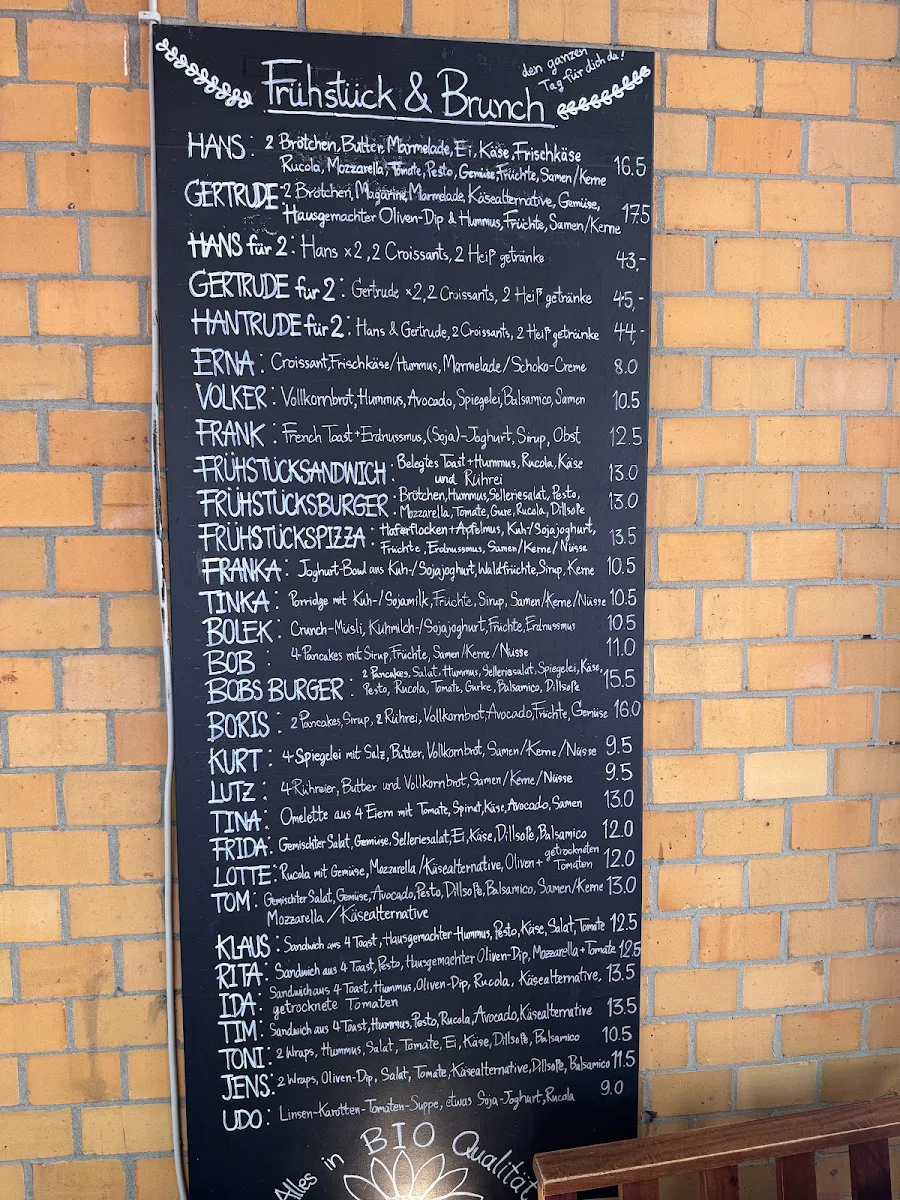 den ganzen
Tag für dich da!
Frühstück & Brunch
HANS: 2 Brötchen, Butter, Marmelade, Ei, Käse, Frischkäse
Rucola, Mozzarella, Tomate, Pesto, Gemüse, Früchte, Samen/Kerne 16.5
GERTRUDE: 2 Brötchen, Magarine, Marmelade, Käsealternative, Gemüse,
Hausgemachter Oliven-Dip & Hummus, Früchte, Samen/Kerne 17.5
HANS für 2: Hans x2, 2 Croissants, 2 Heißgetränke 43,-
GERTRUDE für 2: Gertrude x2, 2 Croissants, 2 Heißgetränke 45,-
HANTRUDE für 2: Hans & Gertrude, 2 Croissants, 2 Heißgetränke 44,-
ERNA: Croissant, Frischkäse/Hummus, Marmelade/Schoko-Creme 8.0
VOLKER: Vollkornbrot, Hummus, Avocado, Spiegelei, Balsamico, Samen 10.5
FRANK: French Toast + Erdnussmus, (Soja)-Joghurt, Sirup, Obst 12.5
FRÜHSTÜCKSANDWICH: Belegtes Toast + Hummus, Rucola, Käse
und Rührei 13.0
FRÜHSTÜCKSBURGER: Brötchen, Hummus, Selleriesalat, Pesto,
Mozzarella, Tomate, Gure, Rucola, Dillsoße 13.0
FRÜHSTÜCKSPIZZA: Haferflocken + Apfelmus, Kuh-/Sojajoghurt,
Früchte, Erdnussmus, Samen/Kerne/Nüsse 13.5
FRANKA: Joghurt-Bowl aus Kuh-/Sojajoghurt, Waldfrüchte, Sirup, Kerne 10.5
TINKA: Porridge mit Kuh-/Sojamilk, Früchte, Sirup, Samen/Kerne/Nüsse 10.5
BOLEK: Crunch-Müsli, Kuhmilch-/Sojajoghurt, Früchte, Erdnussmus 10.5
BOB: 4 Pancakes mit Sirup, Früchte, Samen/Kerne/Nüsse 11.0
BOBS BURGER: 2 Pancakes, Salat, Hummus, Selleriesalat, Spiegelei, Käse,
Pesto, Rucola, Tomate, Gurke, Balsamico, Dillsoße 15.5
BORIS: 2 Pancakes, Sirup, 2 Rührei, Vollkornbrot, Avocado, Früchte, Gemüse 16.0
KURT: 4 Spiegelei mit Salz, Butter, Vollkornbrot, Samen/Kerne/Nüsse 9.5
LUTZ: 4 Rühreier, Butter und Vollkornbrot, Samen/Kerne/Nüsse 9.5
TINA: Omelette aus 4 Eiern mit Tomate, Spinat, Käse, Avocado, Samen 13.0
FRIDA: Gemischter Salat, Gemüse, Selleriesalat, Ei, Käse, Dillsoße, Balsamico 12.0
LOTTE: Rucola mit Gemüse, Mozzarella/Käsealternative, Oliven + getrockneten
Tomaten 12.0
TOM: Gemischter Salat, Gemüse, Avocado, Pesto, Dillsoße, Balsamico, Samen/Kerne 13.0
Mozzarella/Käsealternative
KLAUS: Sandwich aus 4 Toast, Hausgemachter Hummus, Pesto, Käse, Salat, Tomate 12.5
RITA: Sandwich aus 4 Toast, Pesto, Hausgemachter Oliven-Dip, Mozzarella + Tomate 12.5
IDA: Sandwich aus 4 Toast, Hummus, Oliven-Dip, Rucola, Käsealternative, 13.5
getrocknete Tomaten
TIM: Sandwich aus 4 Toast, Hummus, Pesto, Rucola, Avocado, Käsealternative 13.5
TONI: 2 Wraps, Hummus, Salat, Tomate, Ei, Käse, Dillsoße, Balsamico 10.5
JENS: 2 Wraps, Oliven-Dip, Salat, Tomate, Käsealternative, Dillsoße, Balsamico 11.5
UDO: Linsen-Karotten-Tomaten-Suppe, etwas Soja-Joghurt, Rucola 9.0
Alles in BIO Qualität